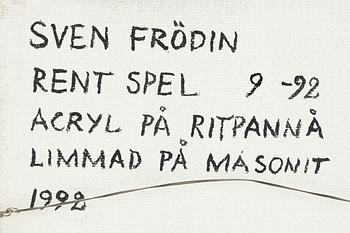 SVEN FRÖDIN
RENT SPEL 9 -92
ACRYL PÅ RITPANNÅ
LIMMAD PÅ MASONIT
1992